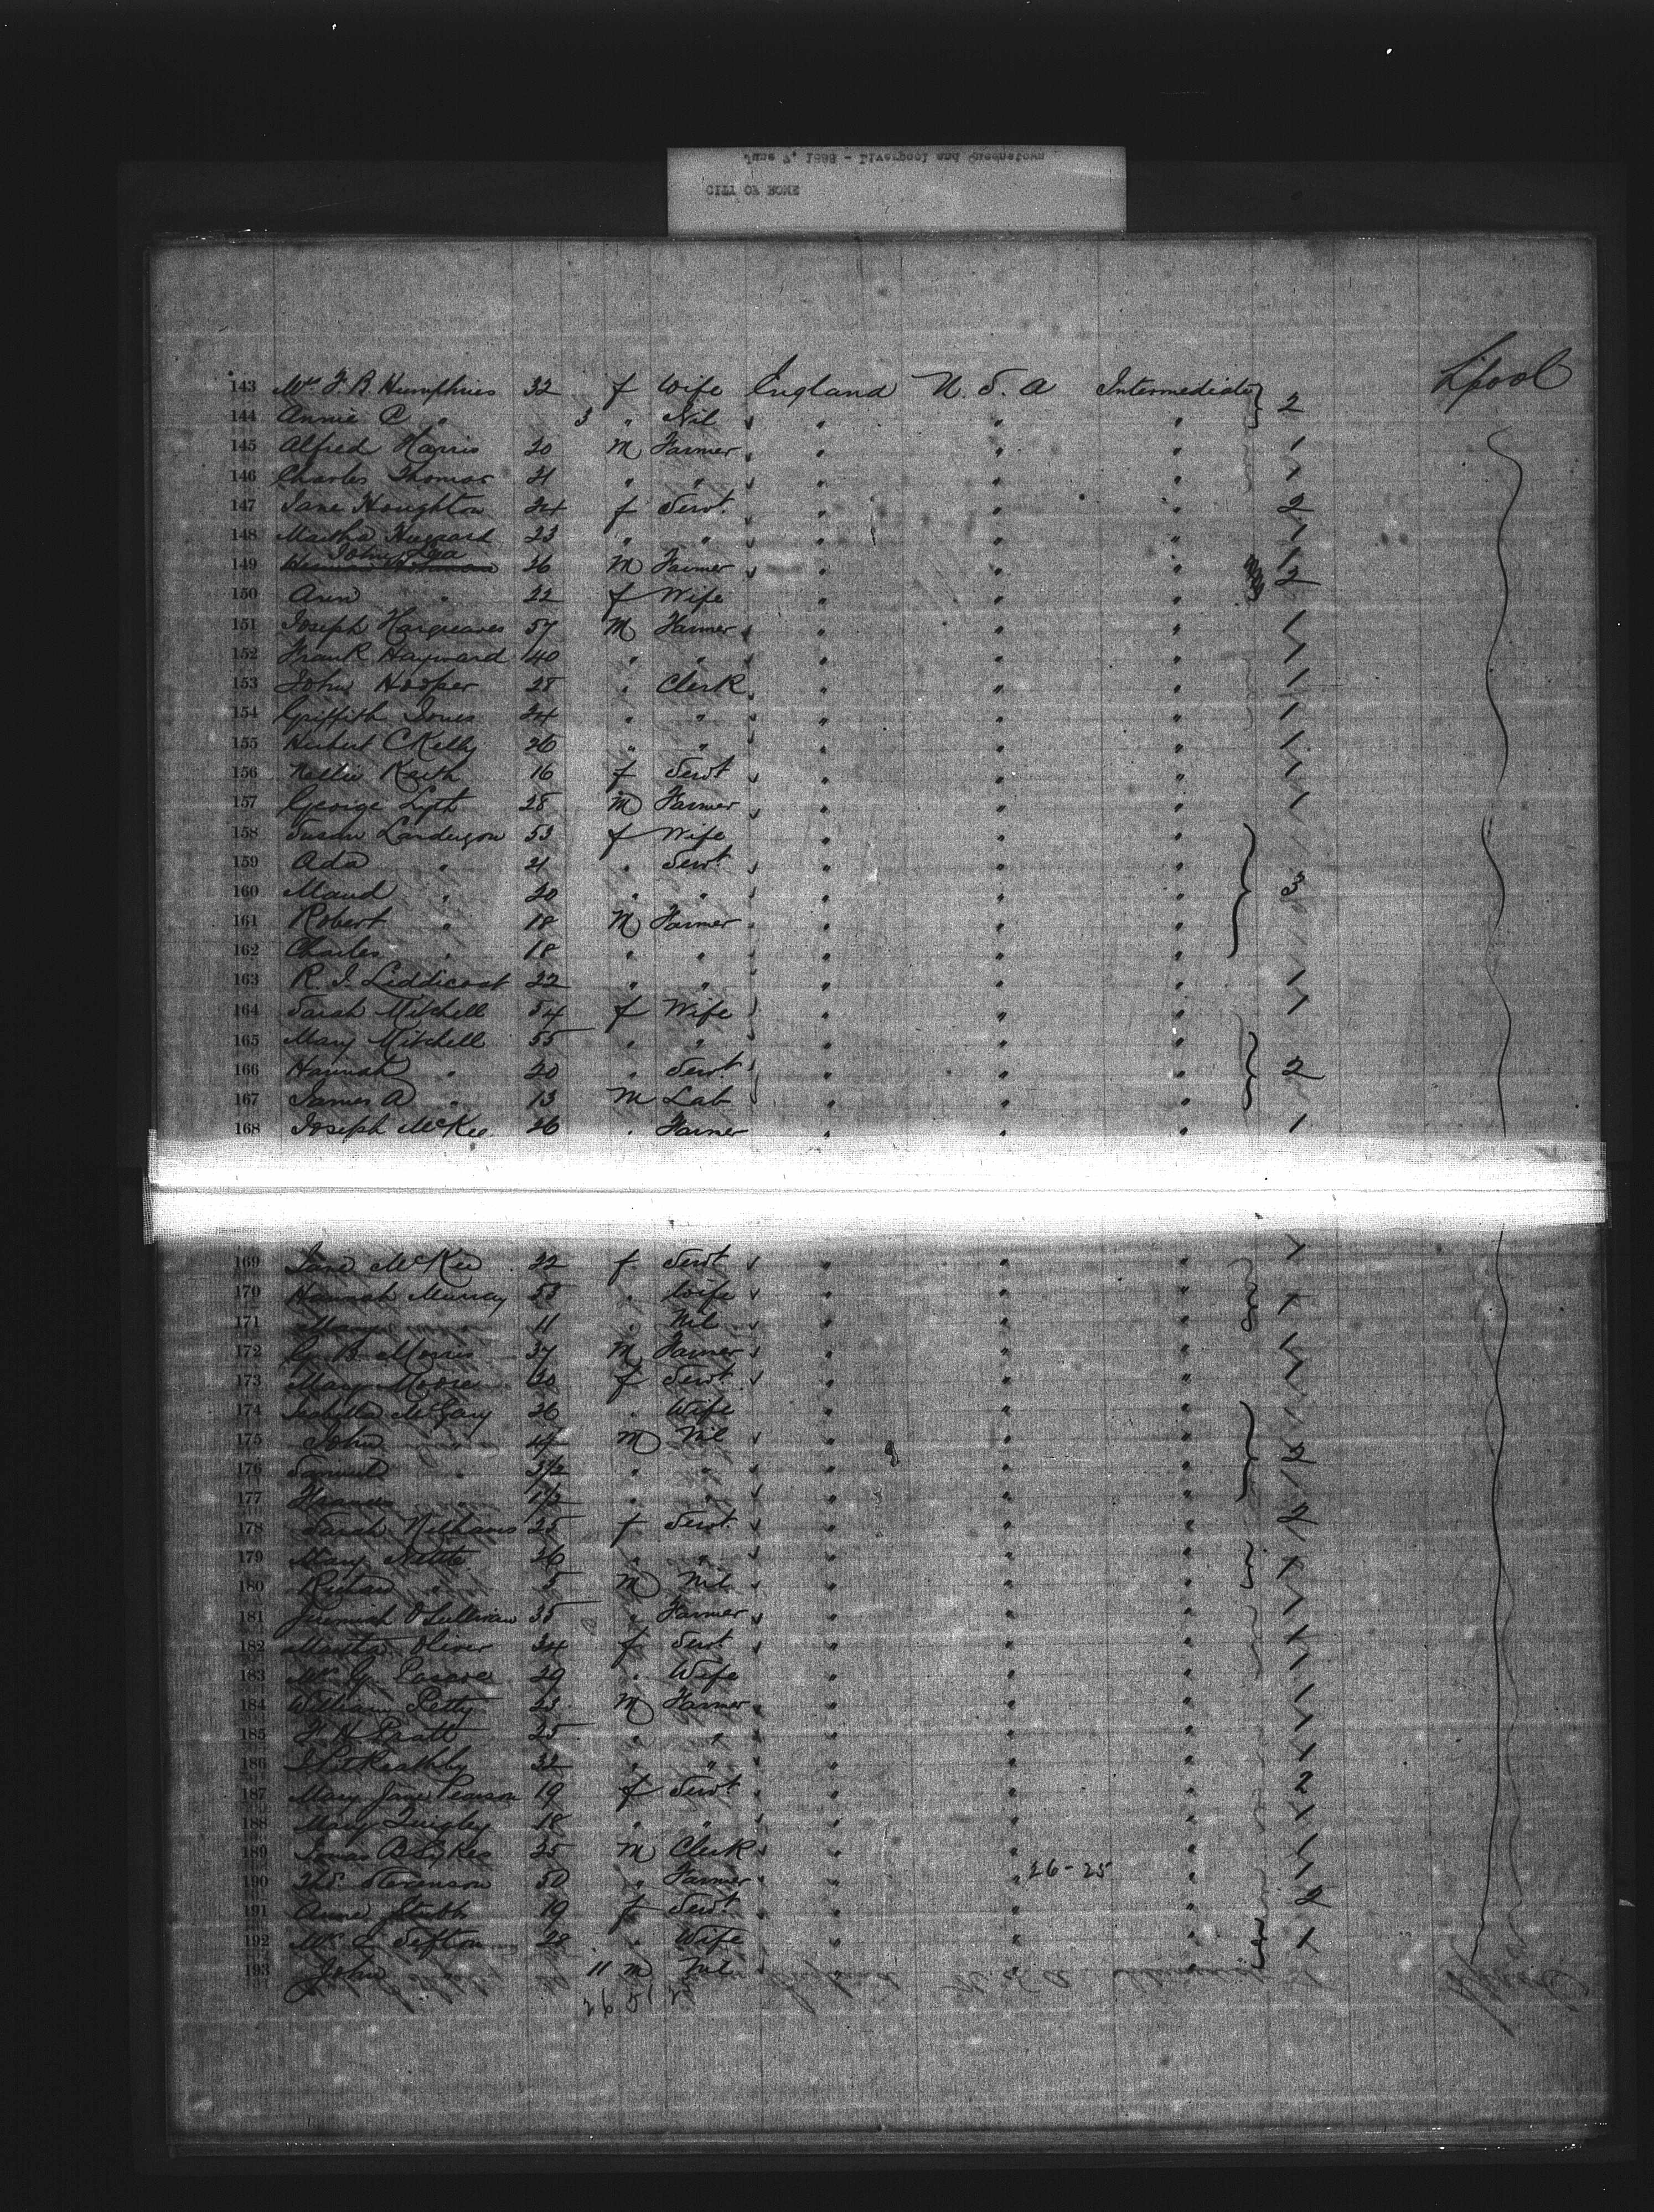 CITY OF ROME
143 Mrs F. B. Humphries 32 f Wife England U. S. A Intermediate } 2 L'pool
144 Annie C " 3 " Nil " " "
145 Alfred Harris 20 M Farmer " " " 1
146 Charles Thomas 21 " " " " " 1
147 Jane Houghton 24 f Servt. " " " 2
148 Martha 23 " " " " " 1
149 John 26 M Farmer " " " 2
150 Ann " 22 f Wife " " "
151 Joseph Hargreaves 57 M Farmer " " " 1
152 Frank Hayward 40 " " " " " 1
153 John Hooper 28 " Clerk " " " 1
154 Griffith Jones 24 " " " " " 1
155 Herbert C Kelly 26 " " " " " 1
156 Nellie Keith 16 f Servt " " " 1
157 George Lyth 28 M Farmer " " " 1
158 Susan 53 f Wife " " "
159 Ada " 21 " Servt " " "
160 Maud " 20 " " " " " } 3
161 Robert " 18 M Farmer " " "
162 Charles " 18 " " " " "
163 R. J. Liddicoat 22 " " " " " 1
164 Sarah Mitchell 54 f Wife " " " 1
165 Mary Mitchell 55 " " " " "
166 Hannah " 20 " Servt " " " } 2
167 James A " 13 M Lab " " "
168 Joseph McKee 26 " Farmer " " " 1
169 Jane McKee 22 f Servt " " " 1
170 Hannah Murray 53 " Wife " " " 1
171 Mary " 11 " Nil " " "
172 Morris 37 M Farmer " " " 1
173 Mary Moore 20 f Servt " " " 1
174 Isabella McGary 26 " Wife " " "
175 John " 4 M Nil " " " } 2
176 Samuel " 3½ " " " " "
177 Francis " 1½ " " " " "
178 Sarah 25 f Servt " " " 2
179 Mary Nettle 26 " " " " " 1
180 " 5 M Nil " " "
181 Jeremiah O'Sullivan 35 " Farmer " " " 1
182 Martha Oliver 34 f Servt " " " 1
183 29 " Wife " " " 1
184 William Petty 23 M Farmer " " " 1
185 Pratt 25 " " " " " 1
186 32 " " " " " 1
187 Mary Jane Pearson 19 f Servt " " " 2
188 Mary Quigley 18 " " " " " 1
189 Sykes 25 M Clerk " " " 1
190 Stevenson 50 " Farmer " " 26-25 " 1
191 Annie Stubbs 19 f Servt " " " 2
192 Mrs C Sefton 28 " Wife " " " } 1
193 John " 11 M Nil " " "